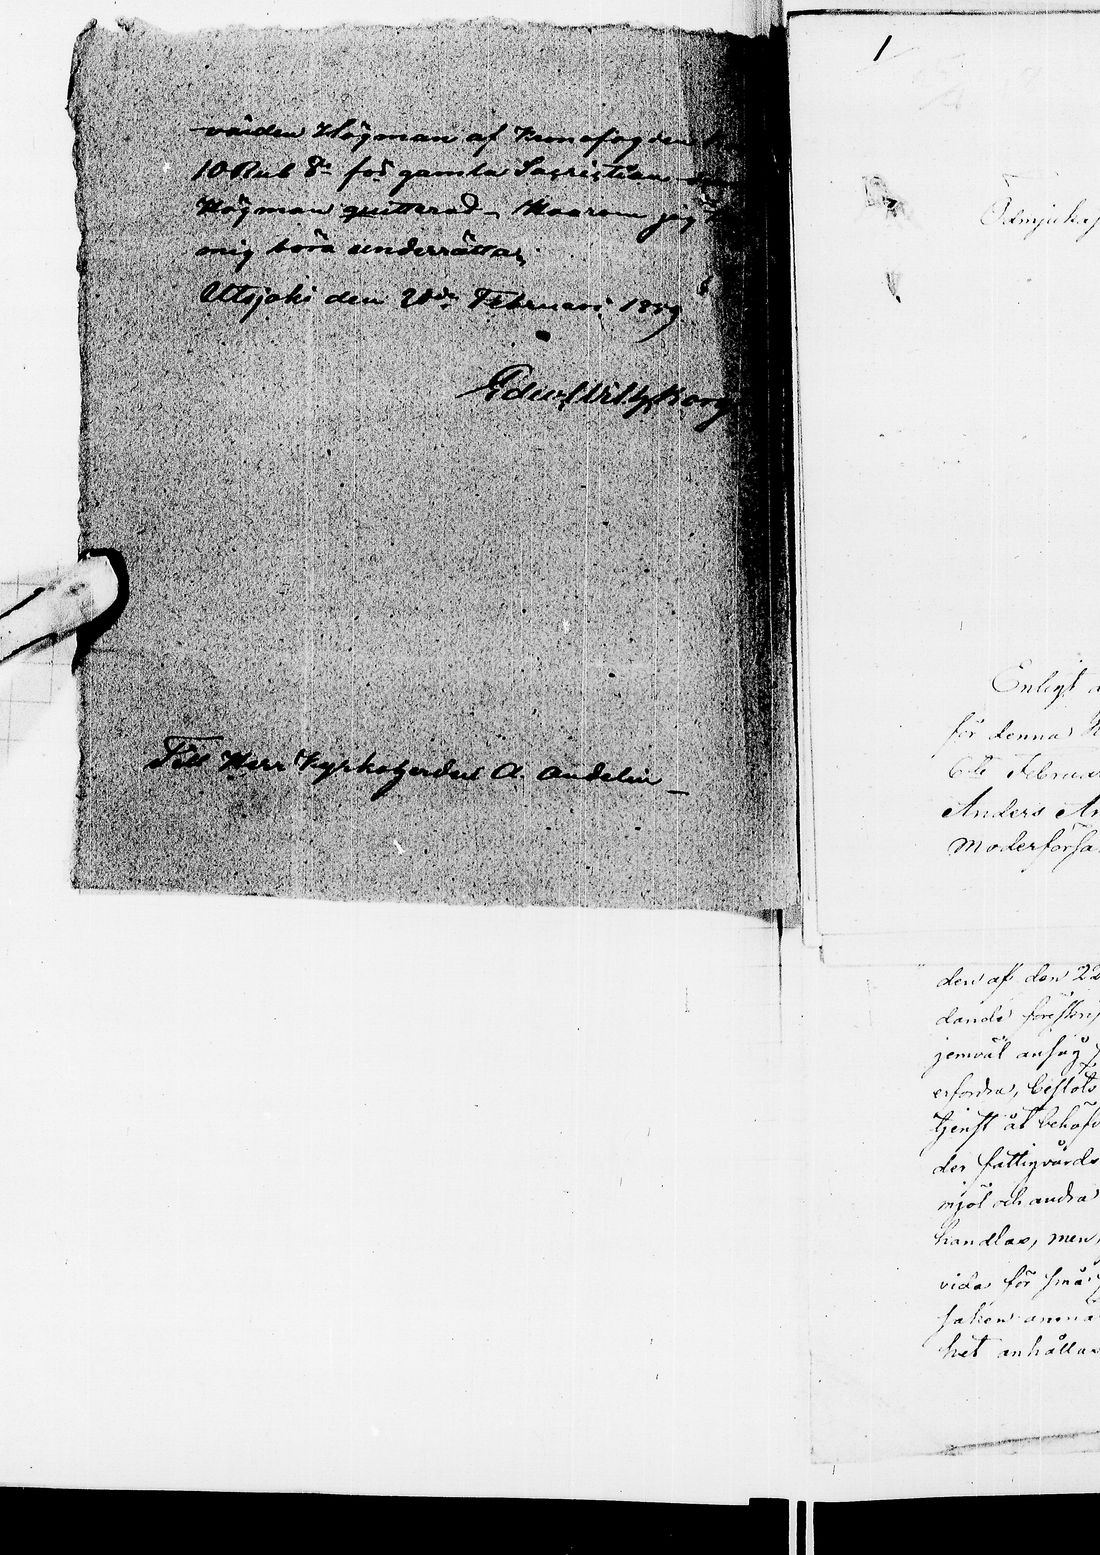 värden Högman af Kronofogden
10 Rub Sr för gamla Sacristian som
Högman quitterad – Hvarom jag
mig böra underrätta,
Utsjoki den 20de Februari 1859
Edw. Wilh. Borg
Till Herr Kyrkoherden A. Andelin –
1
Ödmjukas
Enligt
för denna
6te Februar
Anders An
Moderförsa
den af den 22
dande föreskrif
jemväl ansåg
erfordra,
tjenst åt behöfv
der fattigvårds
mjöl och andra
handlas, men,
vida för små
saken anmä
het anhållas